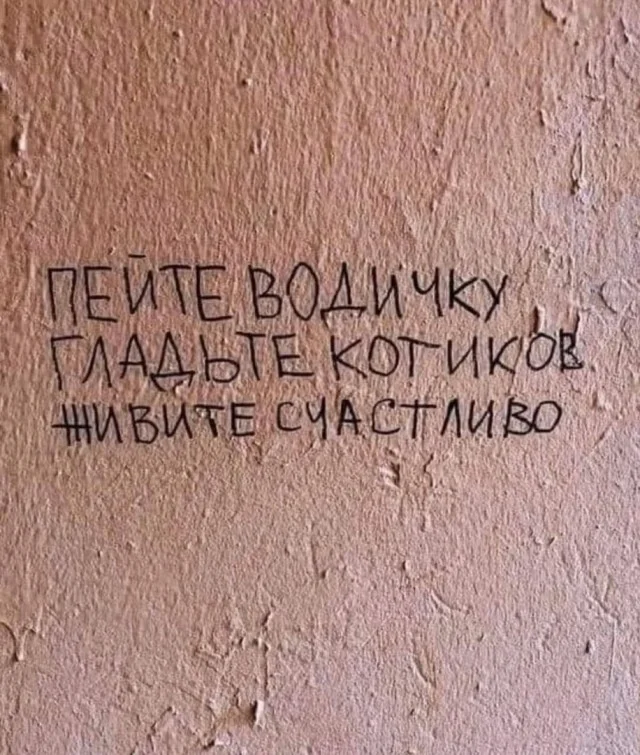 ПЕЙТЕ ВОДИЧКУ
ГЛАДЬТЕ КОТИКОВ
ЖИВИТЕ СЧАСТЛИВО